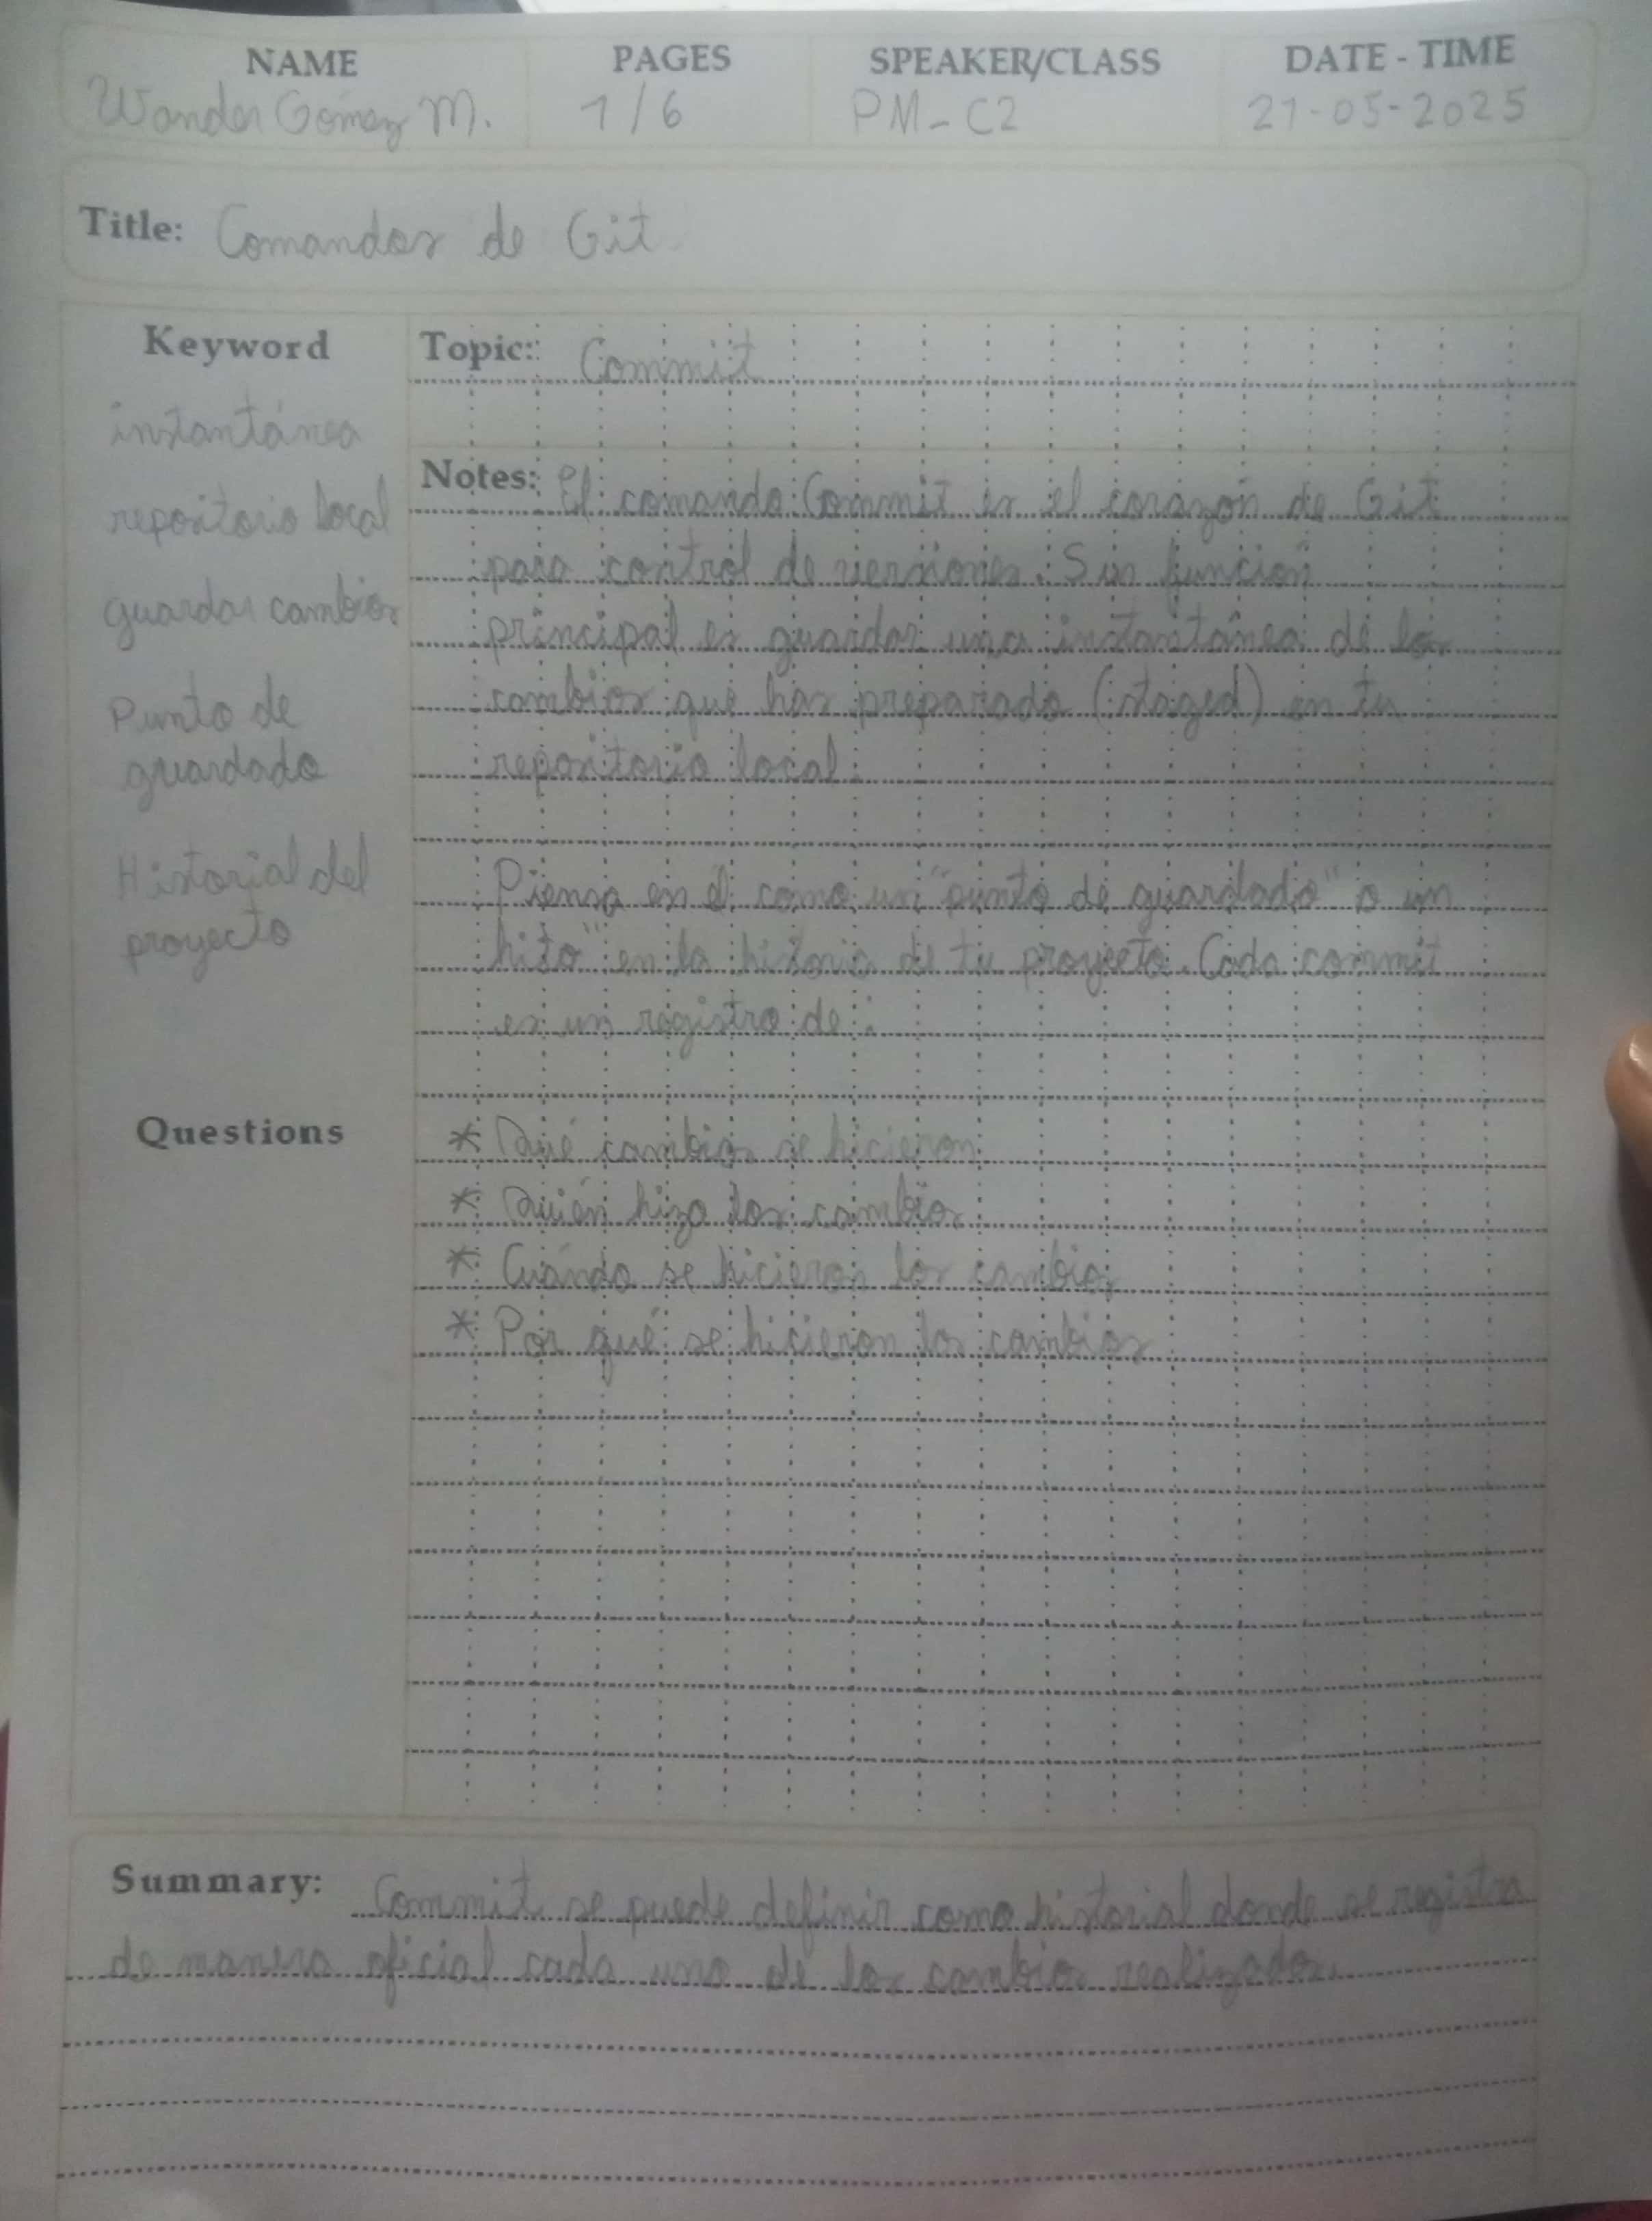 NAME PAGES SPEAKER/CLASS DATE - TIME
Wander Gómez M. 1/6 PM-C2 21-05-2025
Title: Comandos de Git
Keyword
instantánea
repositorio local
guardar cambios
Punto de
guardado
Historial del
proyecto
Questions
Topic: Commit
Notes: El comando Commit es el corazón de Git
para control de versiones. Su función
principal es guardar una instantánea de los
cambios que has preparado (staged) en tu
repositorio local.
Piensa en él como un "punto de guardado" o un
hito" en la historia de tu proyecto. Cada commit
es un registro de:
* Qué cambios se hicieron
* Quién hizo los cambios
* Cuándo se hicieron los cambios
* Por qué se hicieron los cambios
Summary: Commit se puede definir como historial donde se registra
de manera oficial cada uno de los cambios realizados.